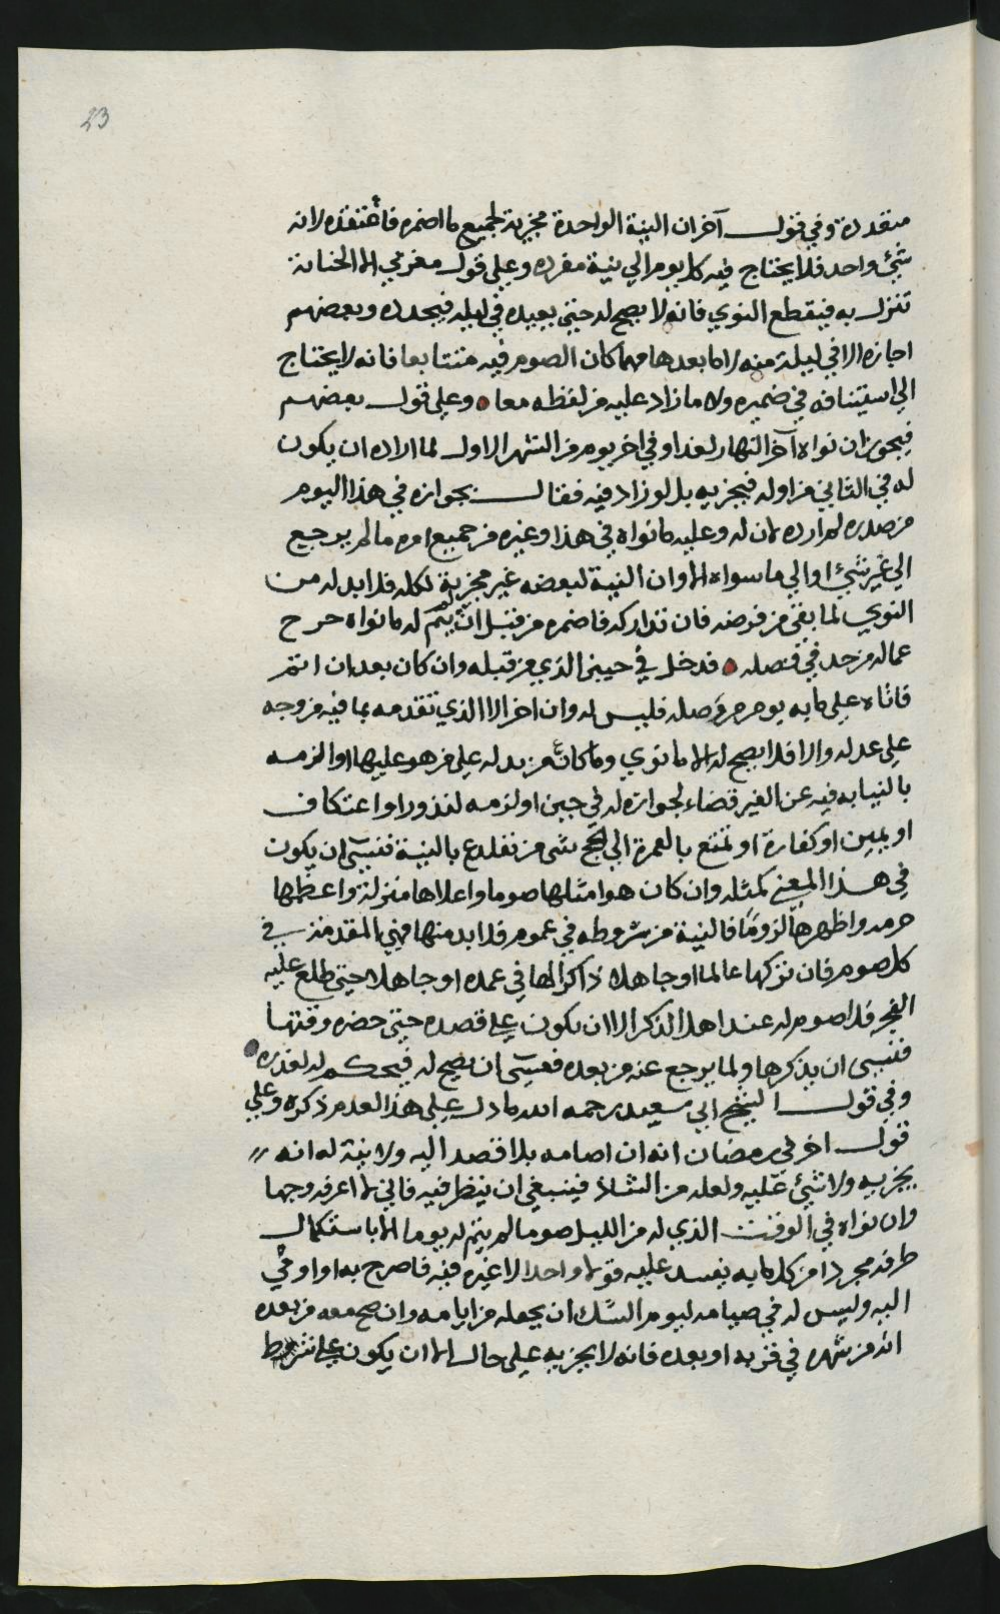 23
متعددة وفي قول آخر ان النية الواحدة مجزية لجميع ما اضمره فاعتقده لانه
شيء واحد فلا يحتاج فيه كل يوم الى نية مفرده وعلى قول مغربي الا لخيانة
تنزل به فيقطع النوي فانه لا يصح له حتى يعيده في ليله فيجدده وبعضهم
اجازه الا في ليلة منه لا ما بعدها مهما كان الصوم فيه متتابعا فانه لا يحتاج
الى استينافه في ضميره ولا ما زاد عليه من لفظه معا وعلى قول بعضهم
فيجوز ان نواه آخر النهار لغد او في اخر يوم من الشهر الاول لما اراده ان يكون
له في الثاني من اوله فيجزيه بل لو زاد فيه فقال بجوازه في هذا اليوم
من صدره لم ارده لان له وعليه ما نواه في هذا وغيره من جميع امره ما لم يرجع
الى غير شيء او الى ما سواه الا وان النية لبعضه غير مجزية لكله فلا بد له من
النوي لما بقى من فرضه فان تداركه فاضمره من قبل ان يتم له ما نواه خرج
عما له من حد في فصله فدخل في حيز الذي من قبله وان كان بعد ان اتم
فاتاه على ما به يومر من وصله فليس له وان اخر الا الذي تقدمه بما فيه من وجه
على عدله والا فلا يصح له الا ما نوي وما كان من بدله على من هو عليه او الزمه
بالنيابه فيه عن الغير قضاء لجوازه له في حين او لزمه لنذور او اعتكاف
او يمين او كفارة او تمتع بالعمرة الى الحج شى من تقلدع بالنية فعسى ان يكون
في هذا المعنى كمثله وان كان هو امثلها صوما واعلاها منزلة واعظمها
حرمه واظهرها لزوما فالنية من شروطه في عموم فلا بد منها فهي المقدمة في
كل صوم فان تركها عالما او جاهلا ذاكرا لها في عمده او جاهلا حتى طلع عليه
الفجر فلا صوم له عند اهل الذكر الا ان يكون على قصده حتى حضره وقتها
فنسى ان يذكرها ولما يرجع عنه من بعده فعسى ان يصح له فيحكم له لعذره
وفي قول الشيخ ابي سعيد رحمه الله ما دل على هذا لعدم ذكره وعلى
قول اخر في رمضان انه ان اصامه بلا قصد اليه ولا نية له انه
يجزيه ولا شيء عليه ولعله من الشاذ فينبغي ان ينظر فيه فاني لا اعرف وجها
وان نواه في الوقت الذي له من الليل صوما لم يتم له يوما الا باستكمال
طرفه مجردا من كل ما به يفسد عليه قولا واحدا لا غيره فيه فاصرح به او اومى
اليه وليس له في صيامه ليوم الشك ان يجعله من ايامه وان صح معه من بعده
انه من شهره في قربه او بعده فانه لا يجزيه على حال الا ان يكون على شرط